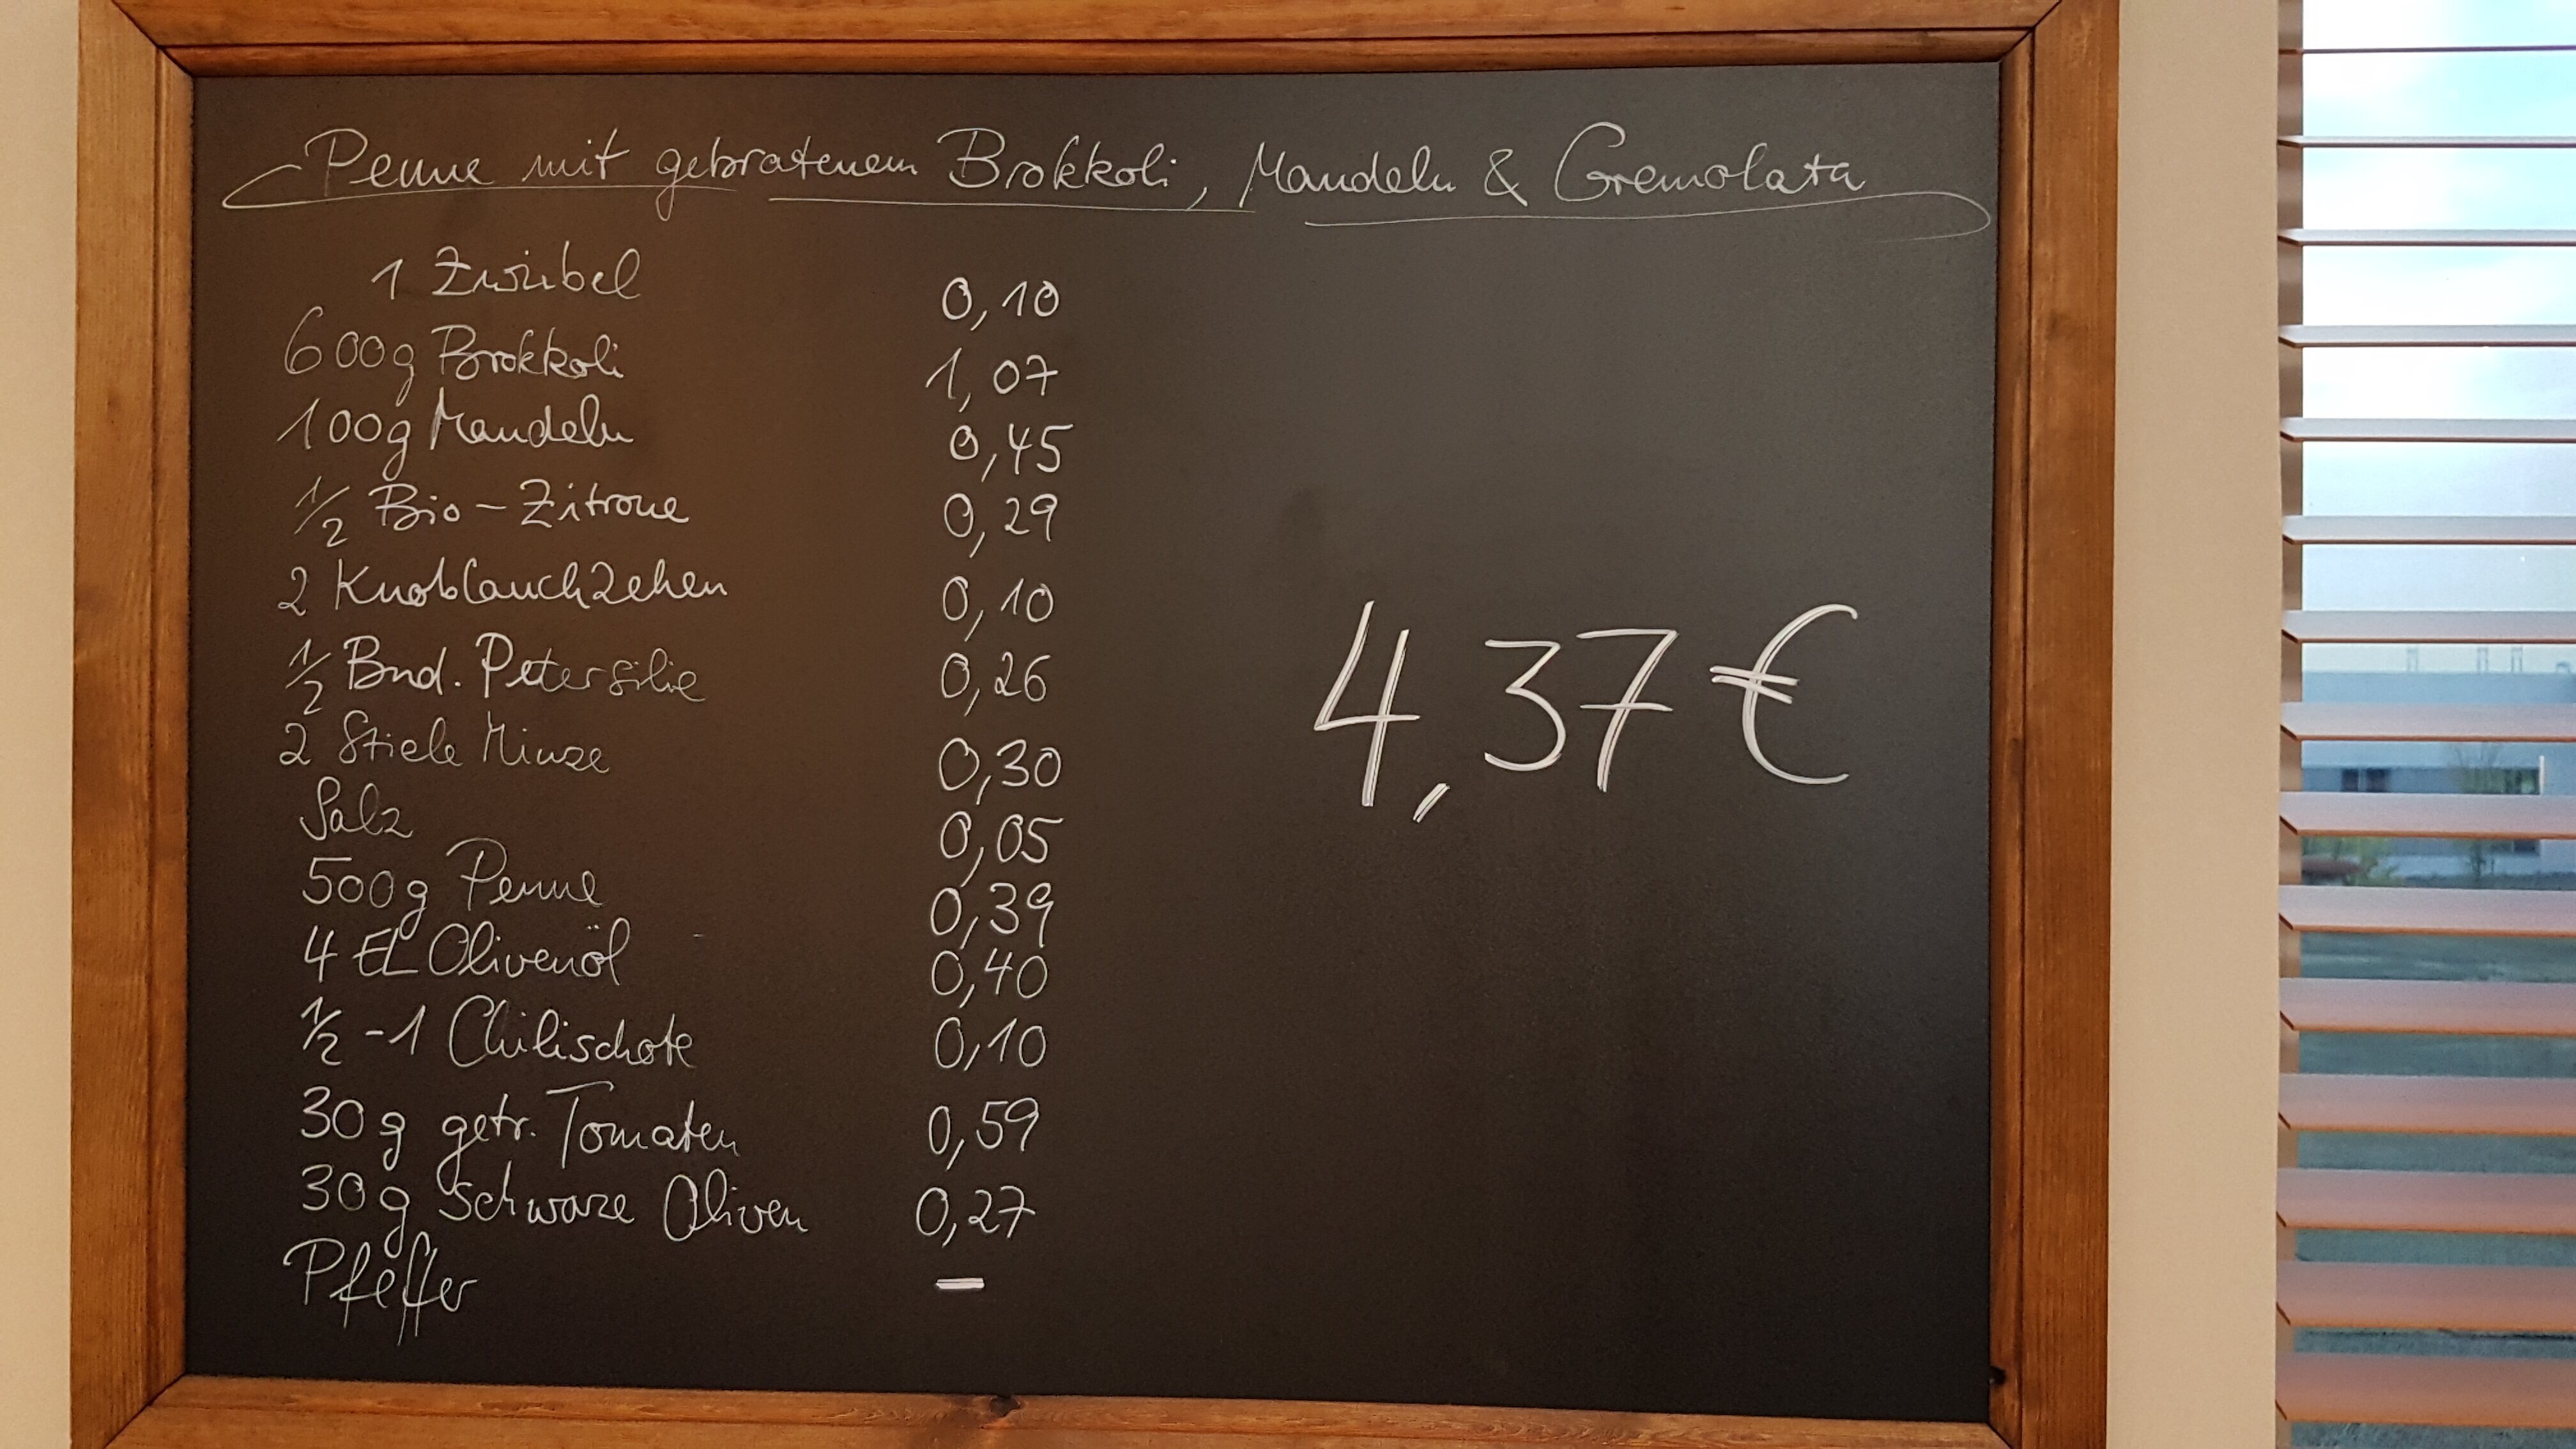 Penne mit gebratenem Brokkoli, Mandeln & Gremolata
1 Zwiebel 0,10
600g Brokkoli 1,07
100g Mandeln 0,45
1/2 Bio-Zitrone 0,29
2 Knoblauchzehen 0,10
1/2 Bnd. Petersilie 0,26
2 Stiele Minze 0,30
Salz 0,05
500g Penne 0,39
4 EL Olivenöl 0,40
1/2 - 1 Chilischote 0,10
30g getr. Tomaten 0,59
30g schwarze Oliven 0,27
Pfeffer –
4,37€